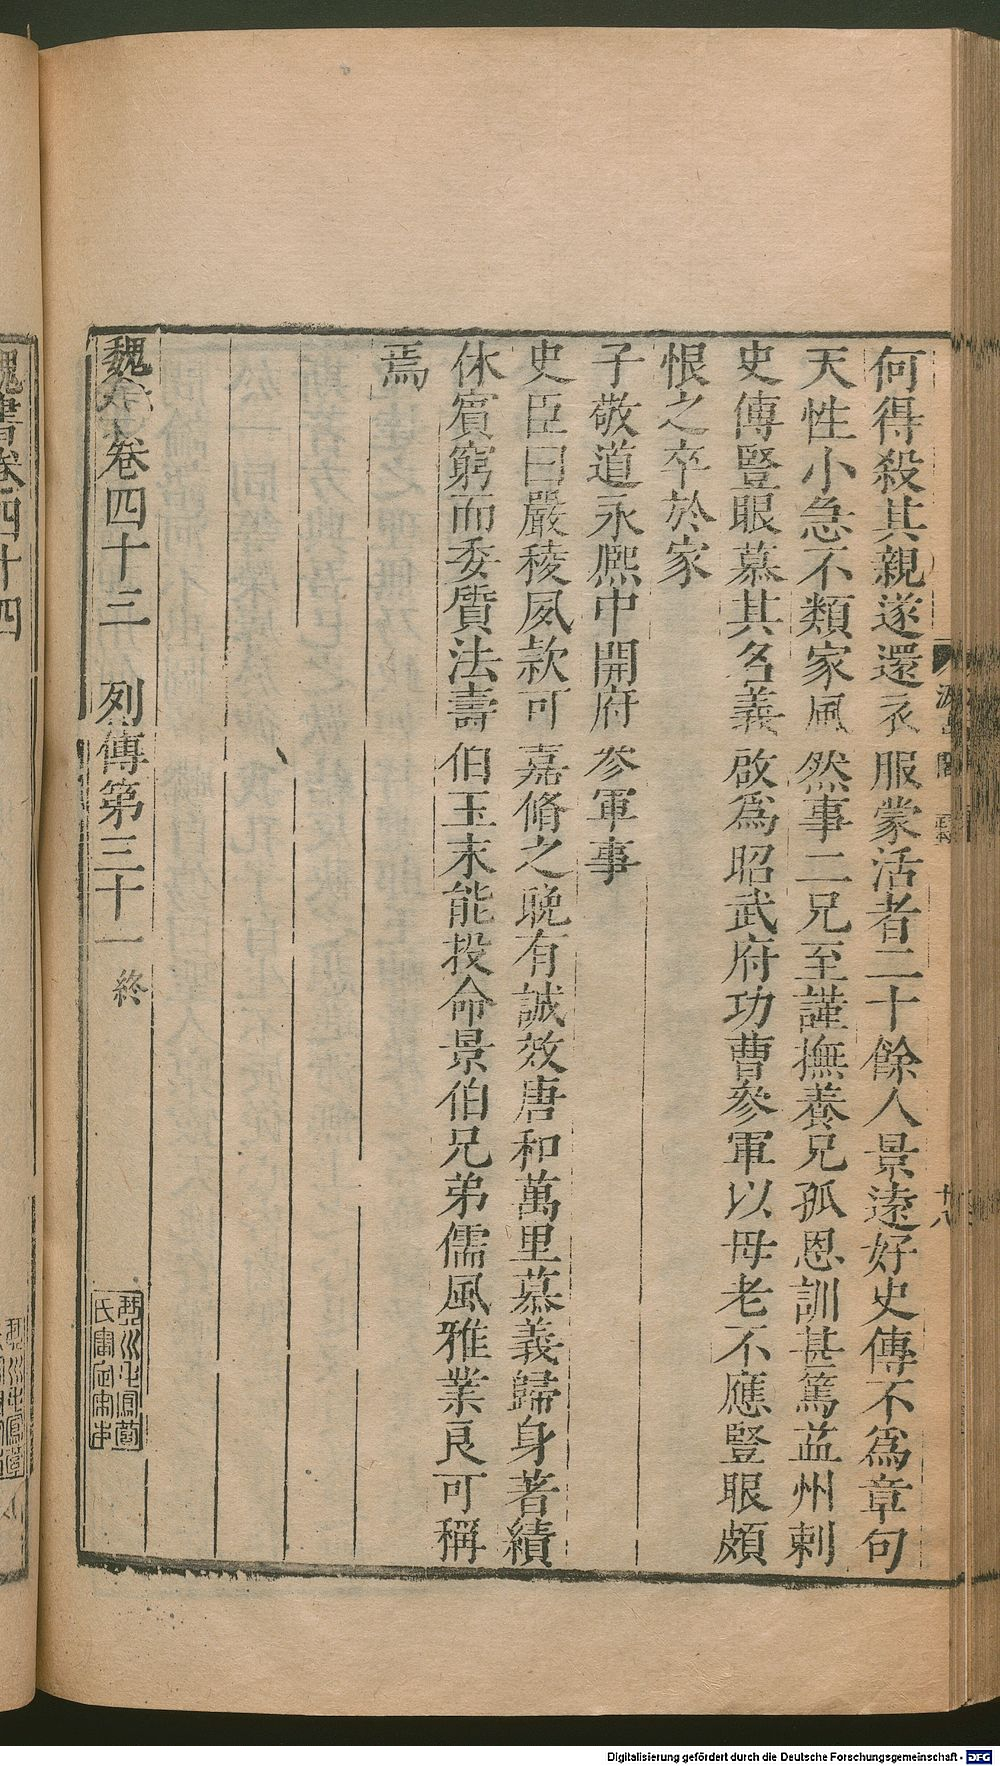 何得殺其親遂還衣服蒙活者二十餘人景遠好史傳不爲章句
天性小急不類家風然事二兄至謹撫養兄孤恩訓甚篤益州刺
史傅豎眼慕其名義啟爲昭武府功曹參軍以母老不應豎眼頗
恨之卒於家
子敬道永熙中開府參軍事
史臣曰嚴稜夙款可嘉脩之晚有誠效唐和萬里慕義歸身著績
休賓窮而委質法壽伯玉末能投命景伯兄弟儒風雅業良可稱
焉
魏書卷四十三 列傳第三十一終
魏書卷四十四
Digitalisierung gefördert durch die Deutsche Forschungsgemeinschaft - DFG